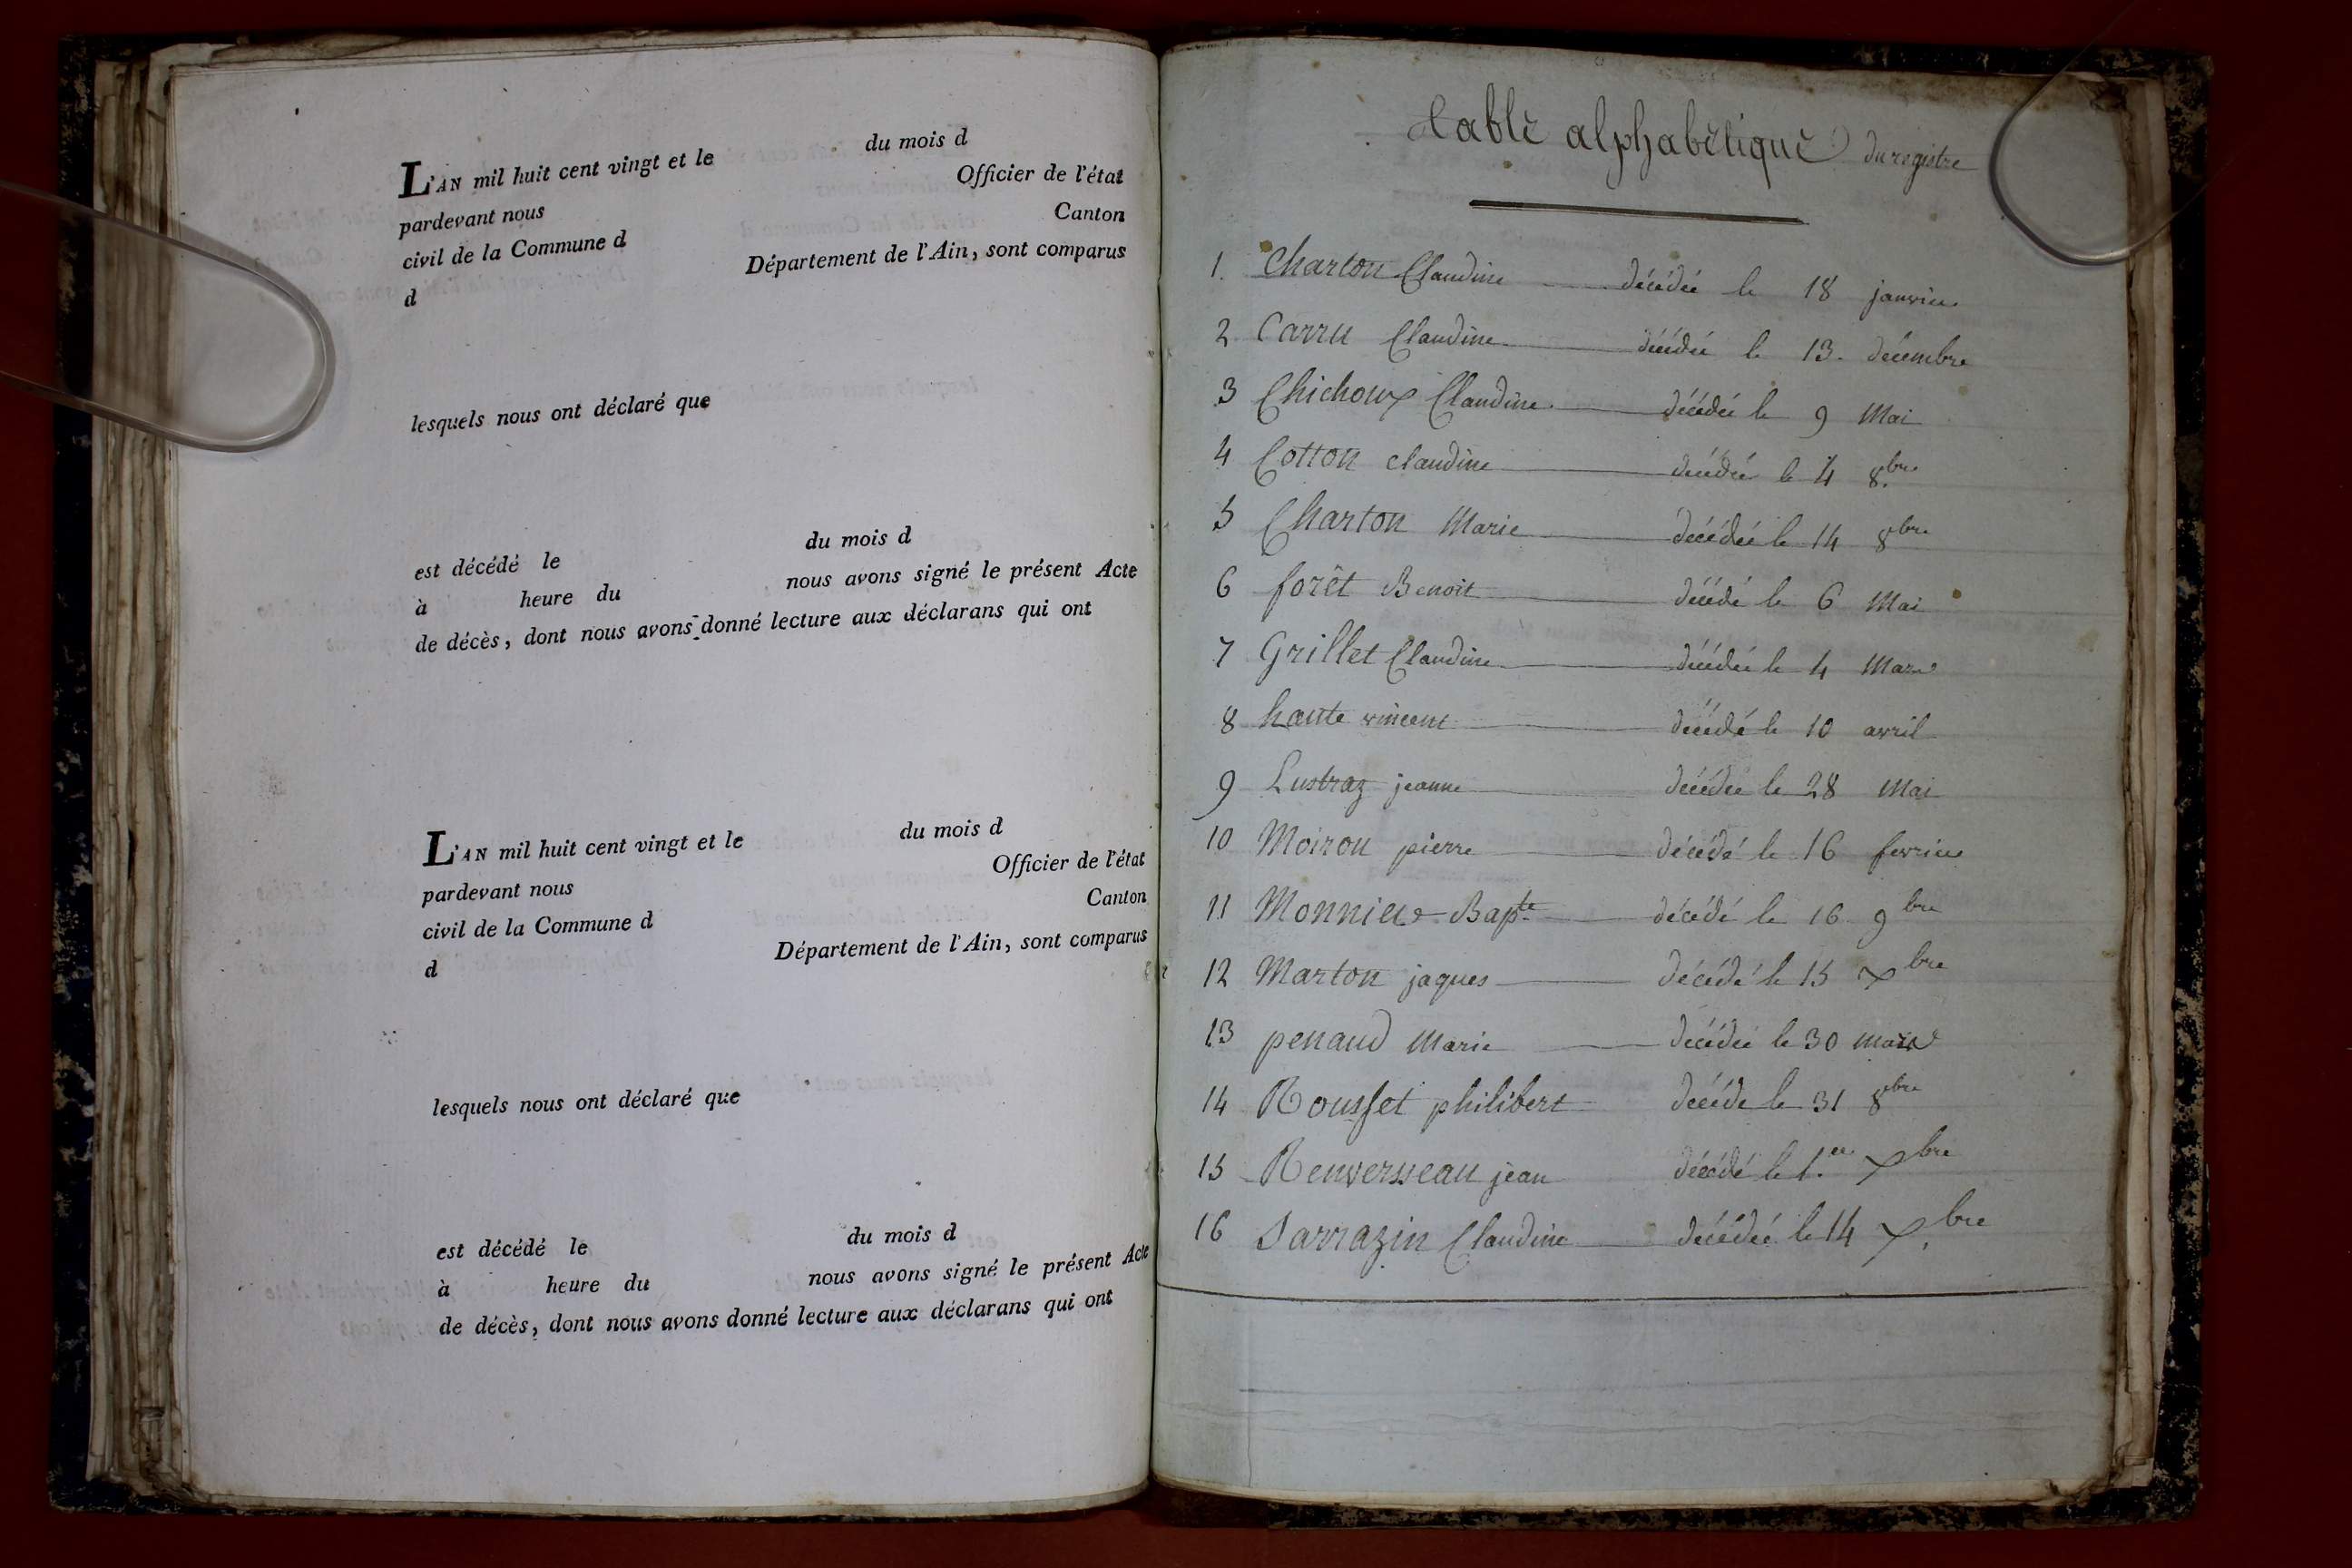 L'AN mil huit cent vingt et le du mois d
pardevant nous Officier de l'état
civil de la Commune d Canton
d Département de l'Ain, sont comparus
lesquels nous ont déclaré que
est décédé le du mois d
à heure du nous avons signé le présent Acte
de décès, dont nous avons donné lecture aux déclarans qui ont
L'AN mil huit cent vingt et le du mois d
pardevant nous Officier de l'état
civil de la Commune d Canton
d Département de l'Ain, sont comparus
lesquels nous ont déclaré que
est décédé le du mois d
à heure du nous avons signé le présent Acte
de décès, dont nous avons donné lecture aux déclarans qui ont
Table alphabétique du registre
1. Charton Claudine décédée le 18 janvier
2 Carru Claudine décédée le 13. décembre
3 Chichoux Claudine décédée le 9 Mai
4 Cotton claudine décédée le 4 8.bre
5 Charton Marie décédée le 14 8bre
6 forêt Benoit décédé le 6 Mai
7 Grillet Claudine décédée le 4 Mars
8 haute vincent décédé le 10 avril
9 Lustraz jeanne décédée le 28 Mai
10 Moiron pierre décédé le 16 fevrier
11 Monnier Bapte décédé le 16 9bre
12 Marton jaques décédé le 15 Xbre
13 penaud Marie décédée le 30 mars
14 Rousset philibert décédé le 31 8bre
15 Renversseau jean décédé le 1.er Xbre
16 Sarrazin Claudine décédée le 14 X.bre